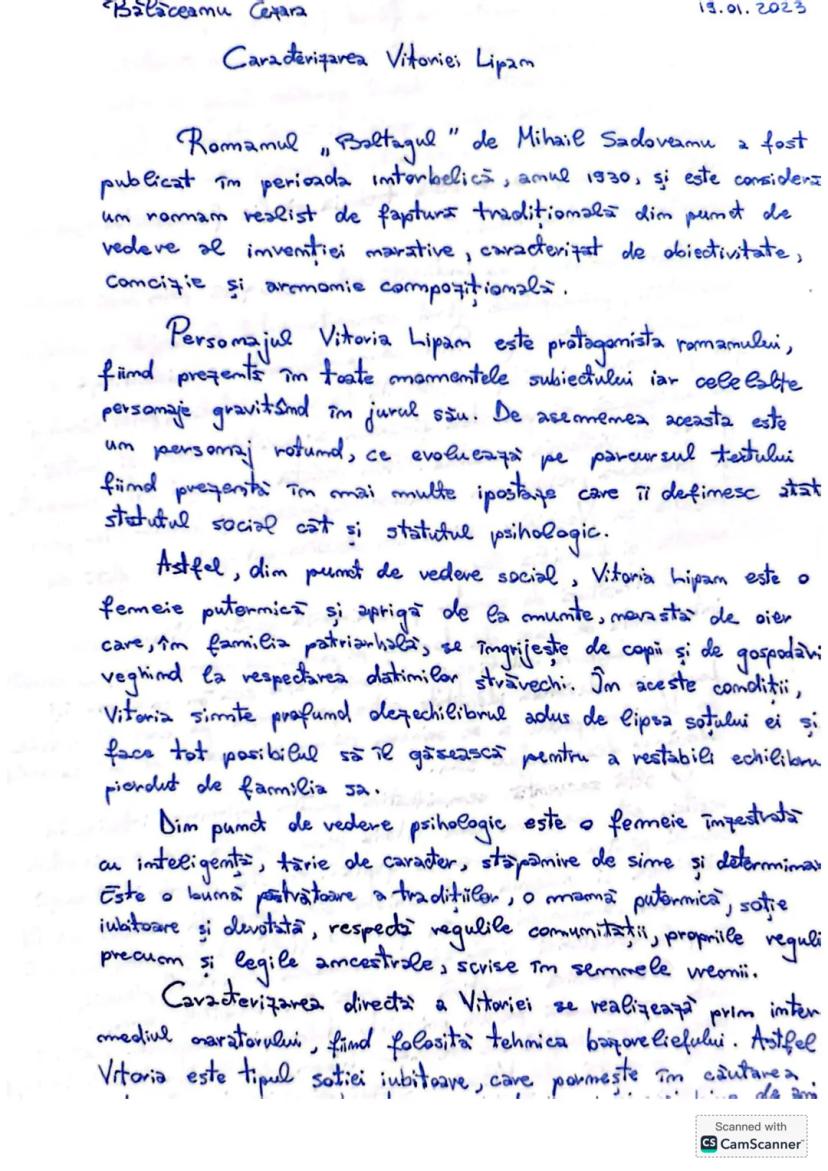 Bălăceanu Cezara 19.01.2023
Caracterizarea Vitoriei Lipan
Romanul „Baltagul" de Mihail Sadoveanu a fost
publicat în perioada interbelică, anul 1930, și este consider
un roman realist de factură tradițională din punct de
vedere al invenției narative, caracterizat de obiectivitate,
concizie și armonie compozițională.
Personajul Vitoria Lipan este protagonista romanului,
fiind prezentă în toate momentele subiectului iar celelalte
personaje gravitând în jurul său. De asemenea aceasta este
un personaj rotund, ce evoluează pe parcursul textului
fiind prezentă în mai multe ipostaze care îi definesc atât
statutul social cât și statutul psihologic.
Astfel, din punct de vedere social, Vitoria Lipan este o
femeie puternică și aprigă de la munte, nevastă de oier
care, în familia patriarhală, se îngrijește de copi și de gospodări
veghind la respectarea datinilor străvechi. În aceste condiții,
Vitoria simte profund dezechilibrul adus de lipsa soțului ei și
face tot posibilul să îl găsească pentru a restabili echilibru
pierdut de familia sa.
Din punct de vedere psihologic este o femeie înzestrată
cu inteligență, tărie de caracter, stăpânire de sine și determinar
Este o bună păstrătoare a tradițiilor, o mamă puternică, soție
iubitoare și devotată, respectă regulile comunității, propriile reguli
precum și legile ancestrale, scrise în semnele vremii.
Caracterizarea directă a Vitoriei se realizează prin inter
mediul naratorului, fiind folosită tehnica basoreliefului. Astfel
Vitoria este tipul soției iubitoare, care pornește în căutarea
Scanned with
CS CamScanner